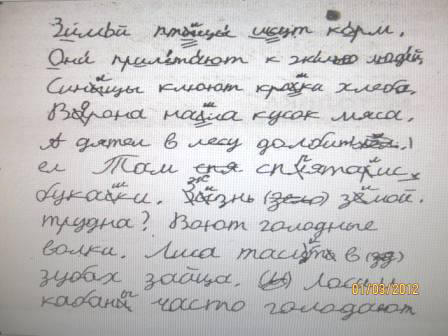 Зимой птицы ищут корм.
Они прилетают к жилью людей
Синицы клюют крошки хлеба.
Ворона нашла кусок мяса.
А дятел в лесу долбит
ел Там спрятались
букашки. Жизнь зимой.
трудна? Воют голодные
волки. Лиса тащит в
зубах зайца. Лоси и
кабаны часто голодают
01/03/2012